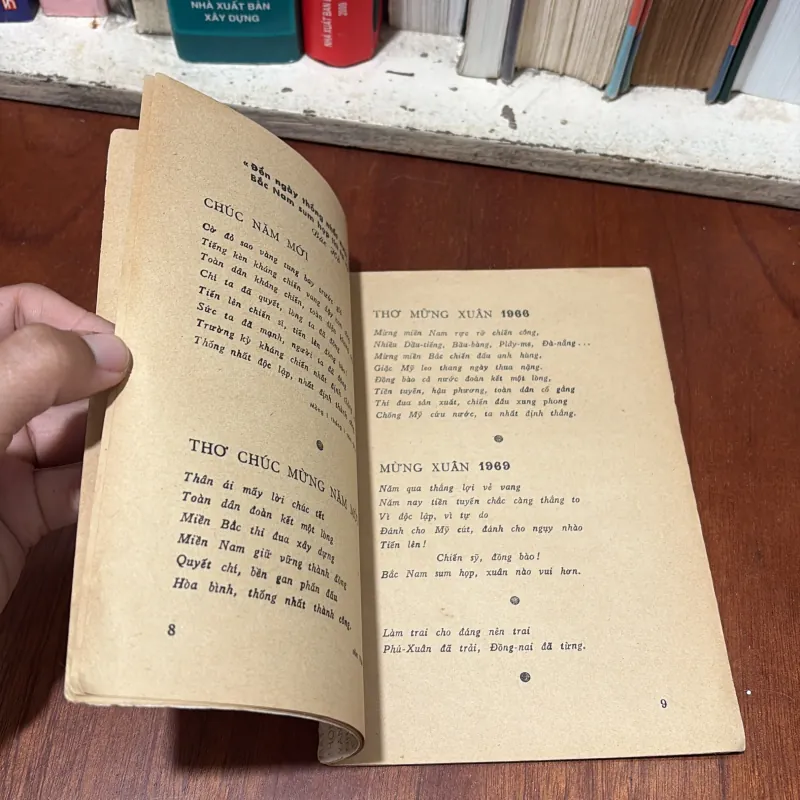 NHÀ XUẤT BẢN
XÂY DỰNG
NHÀ XUẤT BẢN
2005
«Đến ngày thống nhất
Bắc Nam sum họp
CHÚC NĂM MỚI
Cờ đỏ sao vàng tung bay trước gió
Tiếng kèn kháng chiến vang dậy non
Toàn dân kháng chiến, toàn diện
Chí ta đã quyết, lòng ta đã đồng
Tiến lên chiến sĩ, tiến lên đồng bào
Sức ta đã mạnh, người ta đã đông
Trường kỳ kháng chiến nhất định thắng
Thống nhất độc lập, nhất định thành
THƠ CHÚC MỪNG NĂM
Thân ái mấy lời chúc tết
Toàn dân đoàn kết một lòng
Miền Bắc thi đua xây dựng
Miền Nam giữ vững thành đồng
Quyết chí, bền gan phấn đấu
Hòa bình, thống nhất thành công.
8
THƠ MỪNG XUÂN 1966
Mừng miền Nam rực rỡ chiến công,
Nhiều Dầu-tiếng, Bầu-bàng, Plây-me, Đà-nẵng...
Mừng miền Bắc chiến đấu anh hùng,
Giặc Mỹ leo thang ngày thua nặng.
Đồng bào cả nước đoàn kết một lòng,
Tiền tuyến, hậu phương, toàn dân cố gắng
Thi đua sản xuất, chiến đấu xung phong
Chống Mỹ cứu nước, ta nhất định thắng.
MỪNG XUÂN 1969
Năm qua thắng lợi vẻ vang
Năm nay tiền tuyến chắc càng thắng to
Vì độc lập, vì tự do
Đánh cho Mỹ cút, đánh cho ngụy nhào
Tiến lên!
Chiến sỹ, đồng bào!
Bắc Nam sum họp, xuân nào vui hơn.
Làm trai cho đáng nên trai
Phú-Xuân đã trải, Đồng-nai đã từng.
9